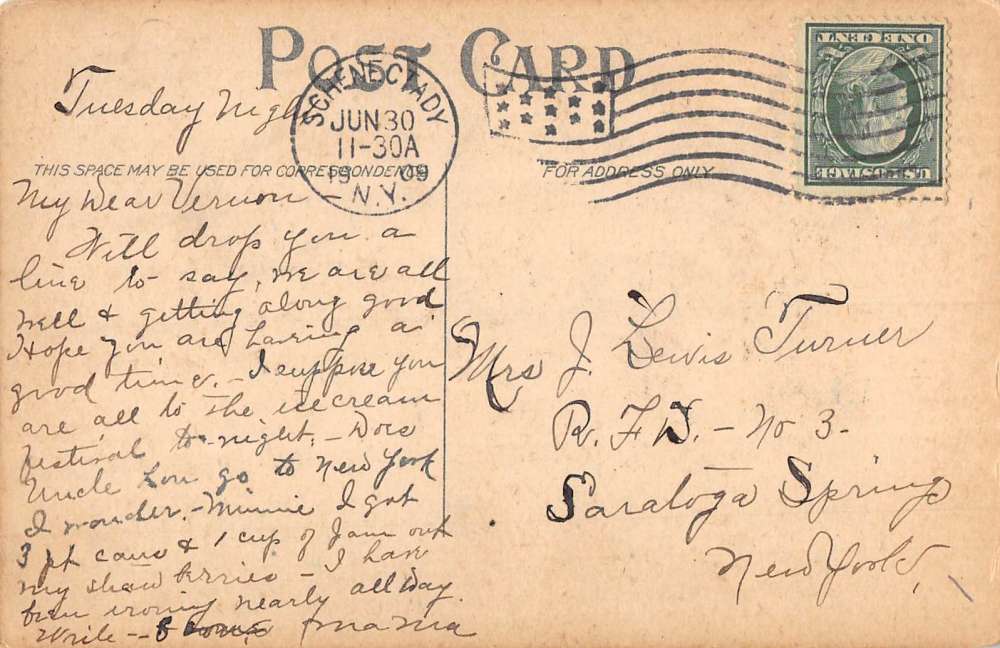 POST CARD
Tuesday Night
SCHENECTADY
JUN 30
11-30A
1909
N.Y.
ONE CENT
U.S. POSTAGE
THIS SPACE MAY BE USED FOR CORRESPONDENCE
FOR ADDRESS ONLY
My Dear Vernon
Will drop you a
line to say, we are all
well & getting along good
Hope you are having a
good time. - I suppose you
are all to the ice cream
festival to-night. - Does
Uncle Lou go to New York
I wonder. - Minnie I got
3 pt cans & 1 cup of Jam out
my straw berries - I have
been ironing nearly all day.
Write - mama
Mrs J. Lewis Turner
R. F. D. - No 3-
Saratoga Springs
New York,